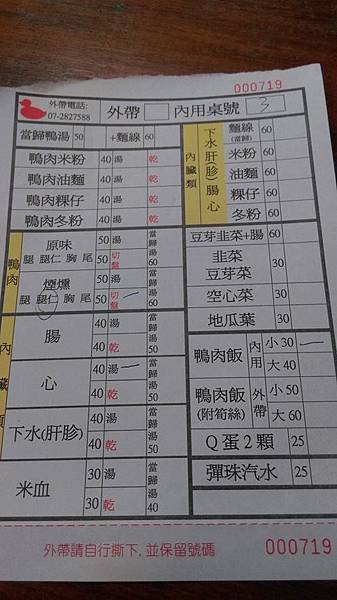 000719
外帶電話:
07-2827588
外帶 內用桌號 3
當歸鴨湯 50 +麵線 60
鴨肉米粉 40 湯 乾
鴨肉油麵 40 湯 乾
鴨肉粿仔 40 湯 乾
鴨肉冬粉 40 湯 乾
鴨肉
原味
腿 腿仁 胸 尾
50 湯
50 切盤
當歸湯 60
煙燻
腿 腿仁 胸 尾
50 湯
50 切盤
當歸湯 60
內臟類
腸
40 湯
40 乾
當歸湯 50
心
40 湯
40 乾
當歸湯 50
下水(肝胗)
40 湯
40 乾
當歸湯 50
米血
30 湯
30 乾
當歸湯 40
內臟類
下水肝(胗)腸心
麵線 60
(當歸)
米粉 60
油麵 60
粿仔 60
冬粉 60
豆芽韭菜+腸 60
韭菜
豆芽菜
30
空心菜 30
地瓜葉 30
鴨肉飯 內用 小30
大40
鴨肉飯
(附筍絲)
外帶 小50
大60
Q蛋2顆 25
彈珠汽水 25
外帶請自行撕下,並保留號碼 000719